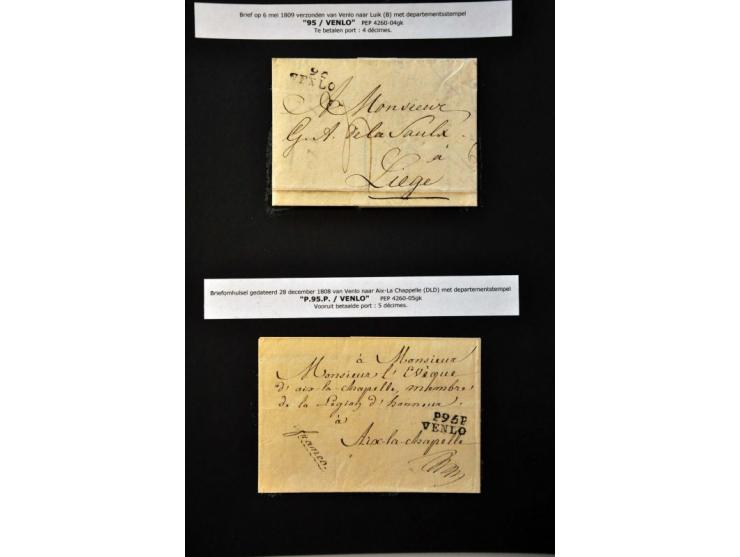 Brief op 6 mei 1809 verzonden van Venlo naar Luik (B) met departementsstempel
"95 / VENLO" PEP 4260-04gk
Te betalen port : 4 décimes.
95
VENLO
A Monsieur
G. A. de la Saulx
à
Liege
Briefomhulsel gedateerd 28 december 1808 van Venlo naar Aix-La Chappelle (DLD) met departementstempel
"P.95.P. / VENLO" PEP 4260-05gk
Vooruit betaalde port : 5 décimes.
à Monsieur
Monsieur l'Evêque
d'aix-la-chapelle, membre
de la Légion d'honneur
à
Aix-la-chapelle
P95P
VENLO
franco.